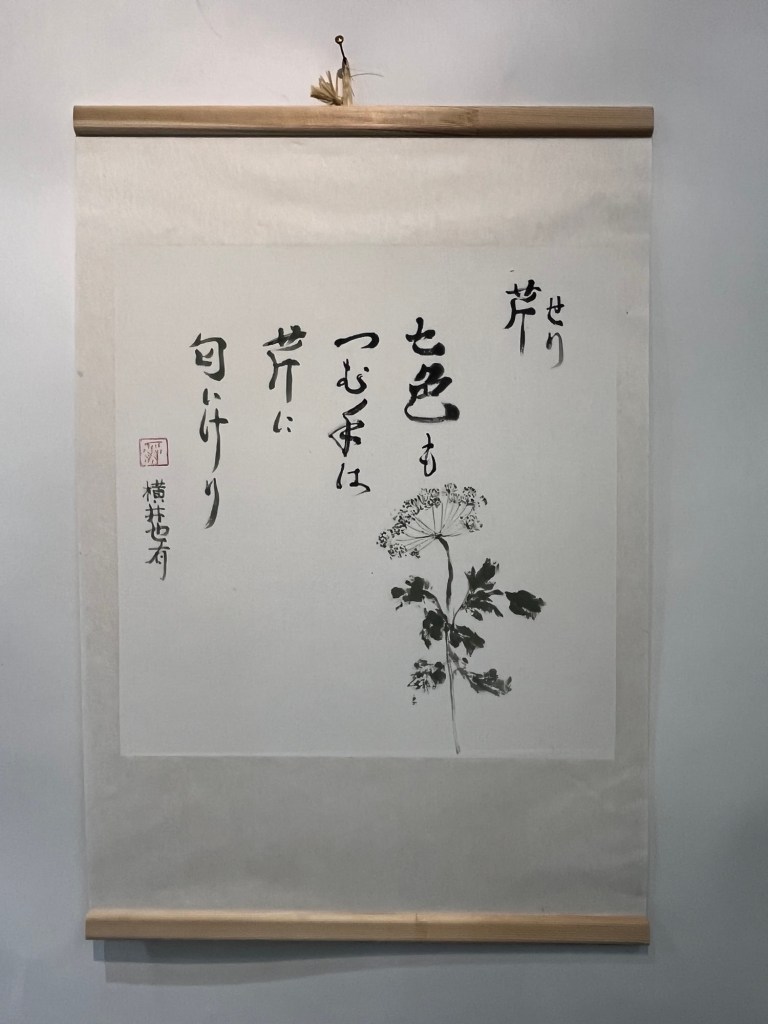 芹
せり
七色も
つむ手は
芹に
匂にけり
横井也有